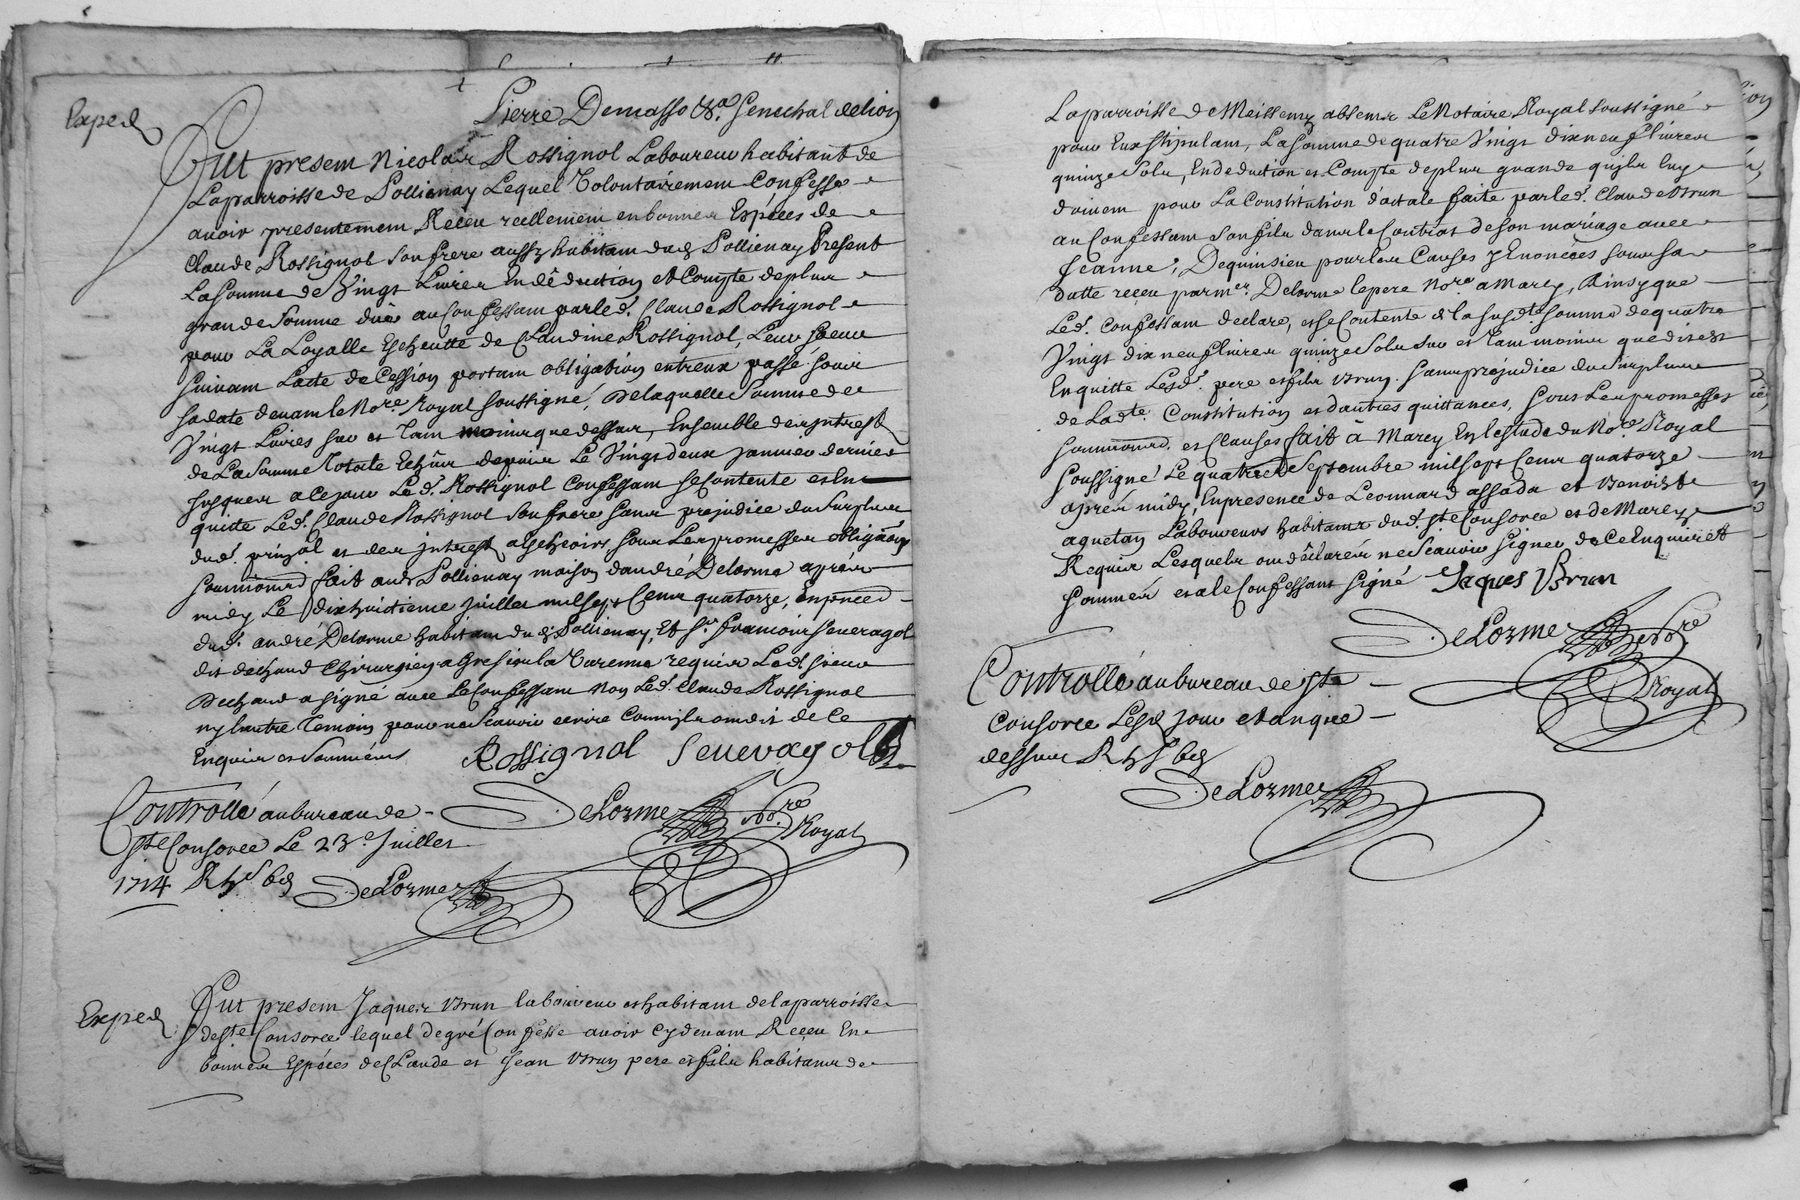 Exped
Pierre Demasso &a. Senechal de lion
Fut present Nicolas Rossignol Laboureur habitant de
La parroisse de Pollienay Lequel Volontairement Confesse
avoir presentement Receu reellement en bonnes Espéces de
Claude Rossignol son frere aussy habitant dud Pollienay Present
La somme de Vingt Livres En déduction et Compte de plus
grande somme düe au Confessant par led. Claude Rossignol
pour La Loyalle Escheutte de Claudine Rossignol, Leur soeur
suivant Lacte de Cession portant obligation entreux passé sous
sa date devant le Nore. Royal soussigné, De laquelle somme de
Vingt Livres sur et tant moins que dessus, Ensemble des jntrest
de La somme Totale Echûs depuis Le Vingt deux janvier dernier
jusques a ce jour Led. Rossignol Confessant se Contente et En
quitte Led. Claude Rossignol son frere sans prejudice du surplus
dud. prinpal et des jntrest a Escheoirs, sous Les promesses obligaons
soumiõns fait aud Pollienay maison dandré Delorme aprés
midy Le dixhuictieme juillet mil sept Cent quatorze, En pnce
dud. andré Delorme habitant dud Pollienay, Et sr. francois Seneragol
dit dechaud Chirurgien a Gresieu la Varenne requis Led sieur
Dechaud a signé avec Le Confessant Non Led. Claude Rossignol
ny lautre Temoin pour ne sçavoir ecrire Comme ils ont dit de Ce
Enquis et sommés Rossignol Senevagol
Controllé au bureau de DeLorme Nore
Ste Consorce Le 23e. Juillet Royal
1714 DeLorme
Exped Fut present Jaques Brun laboureur et habitant de la parroisse
de ste Consorce lequel de gré Confesse avoir cy devant Receu En
bonnes Espéces de Claude et Jean Brun pere et fils habitants de
La parroisse de Meissemy absents Le Notaire Royal soussigné
pour Eux stipulant, La somme de quatre Vingt dix neuf livres
quinze solz, En deduction et Compte de plus grande quils luy
doivent pour La Constitution dotale faite par led. Claude Brun
au Confessant son fils dans le Contrat de son mariage avec
Jeanne Dequinsieu pour les Causes y Enoncées sous sa
datte receu par mer. Delorme le pere nore a Marcy, Ainsy que
Led. Confessant declare, et se Contente de la susdte somme de quatre
Vingt dix neuf livres quinze solz sur et tant moins que dit est
En quitte Lesd. pere et fils Brun. sans prejudice du surplus
de Ladte. Constitution et dautres quittances, sous Les promesses
soumiõns. et Clauses fait â Marcy En lestude du Nore. Royal
soussigné Le quatre Septembre mil sept Cent quatorze
aprés midy, En presence de Leonnard assada et Benoist
aguetan Laboureurs habitants dud. ste Consorce et de Marcy
Requis Lesquels ont déclarés ne sçavoir signer de Ce Enquis et
sommés et a le Confessant signé Jaques Brun
DeLorme Nore
Royal
Controllé au bureau de ste
Consorce Lesd jour et an que
dessus
DeLorme